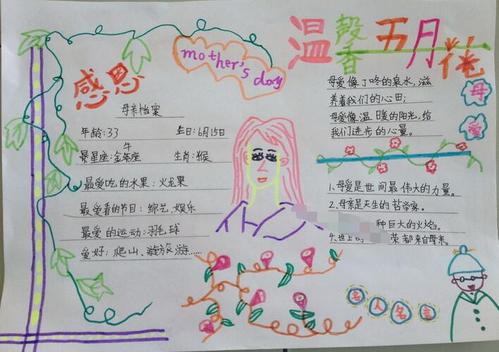 温馨五月花
香
mother's day
感恩
母亲档案
年龄:33 生日:6月15日
牛
景星座:金牛座 生肖:猴
最爱吃的水果:火龙果
最爱看的节目:综艺、娱乐
最爱的运动:羽毛球
爱好:爬山、游旅游……
母爱像丁咚的泉水,滋
养着我们的心田;
母爱像温暖的阳光,给
我们进步的心量。
母爱
1.母爱是世间最伟大的力量。
2.母亲是天生的哲学家。
种巨大的火焰。
4.世上
英都来自母亲。
名人名言